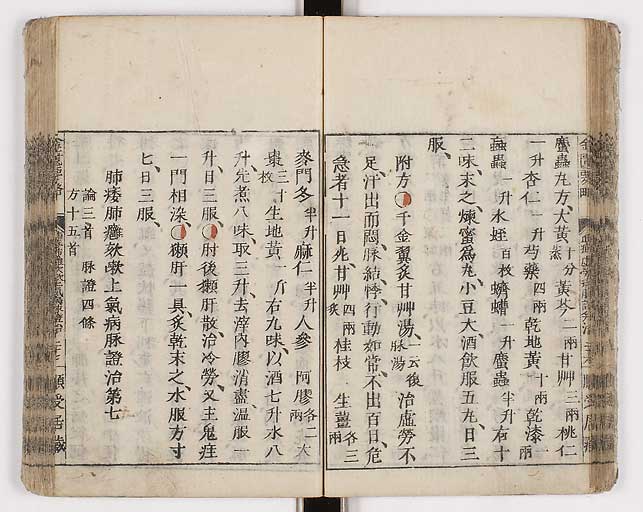 䗪蟲丸方大黃十分蒸黃芩二兩甘艸三兩桃仁
一升杏仁一升芍藥四兩乾地黃十兩乾漆一兩
蝱蟲一升水蛭百枚蠐螬一升䗪蟲半升右十
二味末之煉蜜爲丸小豆大酒飲服五丸日三
服
附方千金翼炙甘艸湯一云復脉湯治虛勞不
足汗出而悶脉結悸行動如常不出百日危
急者十一日死甘艸四兩炙桂枝生薑各三兩
麥門冬半升麻仁半升人參阿膠各二兩大
棗三十枚生地黃一斤右九味以酒七升水八
升先煮八味取三升去滓內膠消盡溫服一
升日三服肘後獺肝散治冷勞又主鬼疰
一門相染獺肝一具炙乾末之水服方寸
匕日三服
肺痿肺癰欬嗽上氣病脉證治第七
論三首脉證四條
方十五首